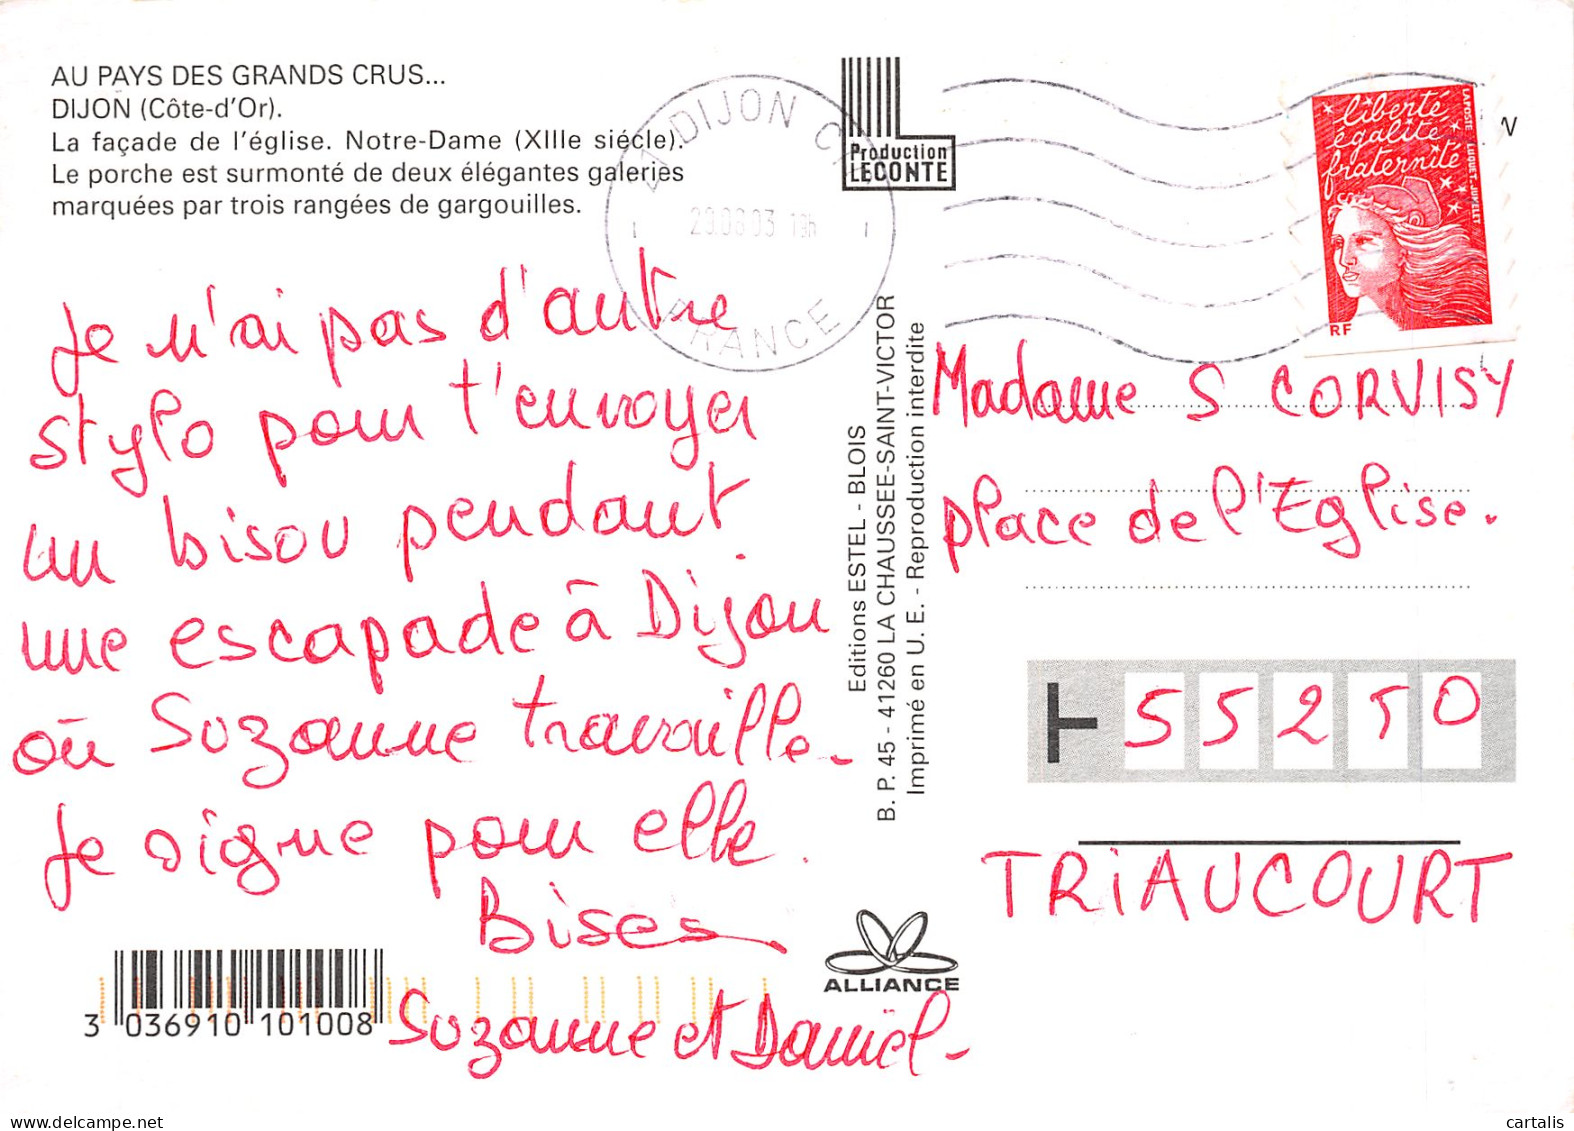 AU PAYS DES GRANDS CRUS...
DIJON (Côte-d'Or).
La façade de l'église. Notre-Dame (XIIIe siécle).
Le porche est surmonté de deux élégantes galeries
marquées par trois rangées de gargouilles.
Je n'ai pas d'autre
stylo pour t'envoyer
un bisou pendant
une escapade à Dijon
où Suzanne travaille -
Je signe pour elle.
Bises
Suzanne et Daniel -
3 036910 101008
21 DIJON C
19h
FRANCE
Production
LECONTE
liberté
égalité
fraternité
LA POSTE LUQUET-JUMELET
RF
Editions ESTEL - BLOIS
B. P. 45 - 41260 LA CHAUSSEE-SAINT-VICTOR
Imprimé en U. E. - Reproduction interdite
Madame S CORVISY
place de l'Eglise.
55250
TRIAUCOURT
ALLIANCE
cartalis